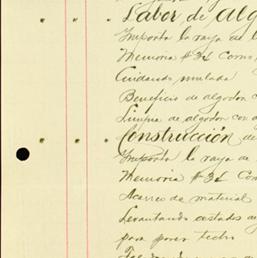 " " " Labor de Alg
Importa la raya de l
Memoria #34 Como
Cuidando mulada
Beneficio de algodon c
Limpia de algodon con a
" " " Construcción de
Importa la raya de
Memoria #34 Com
Acarreo de material
Levantando costados a
para poner techo